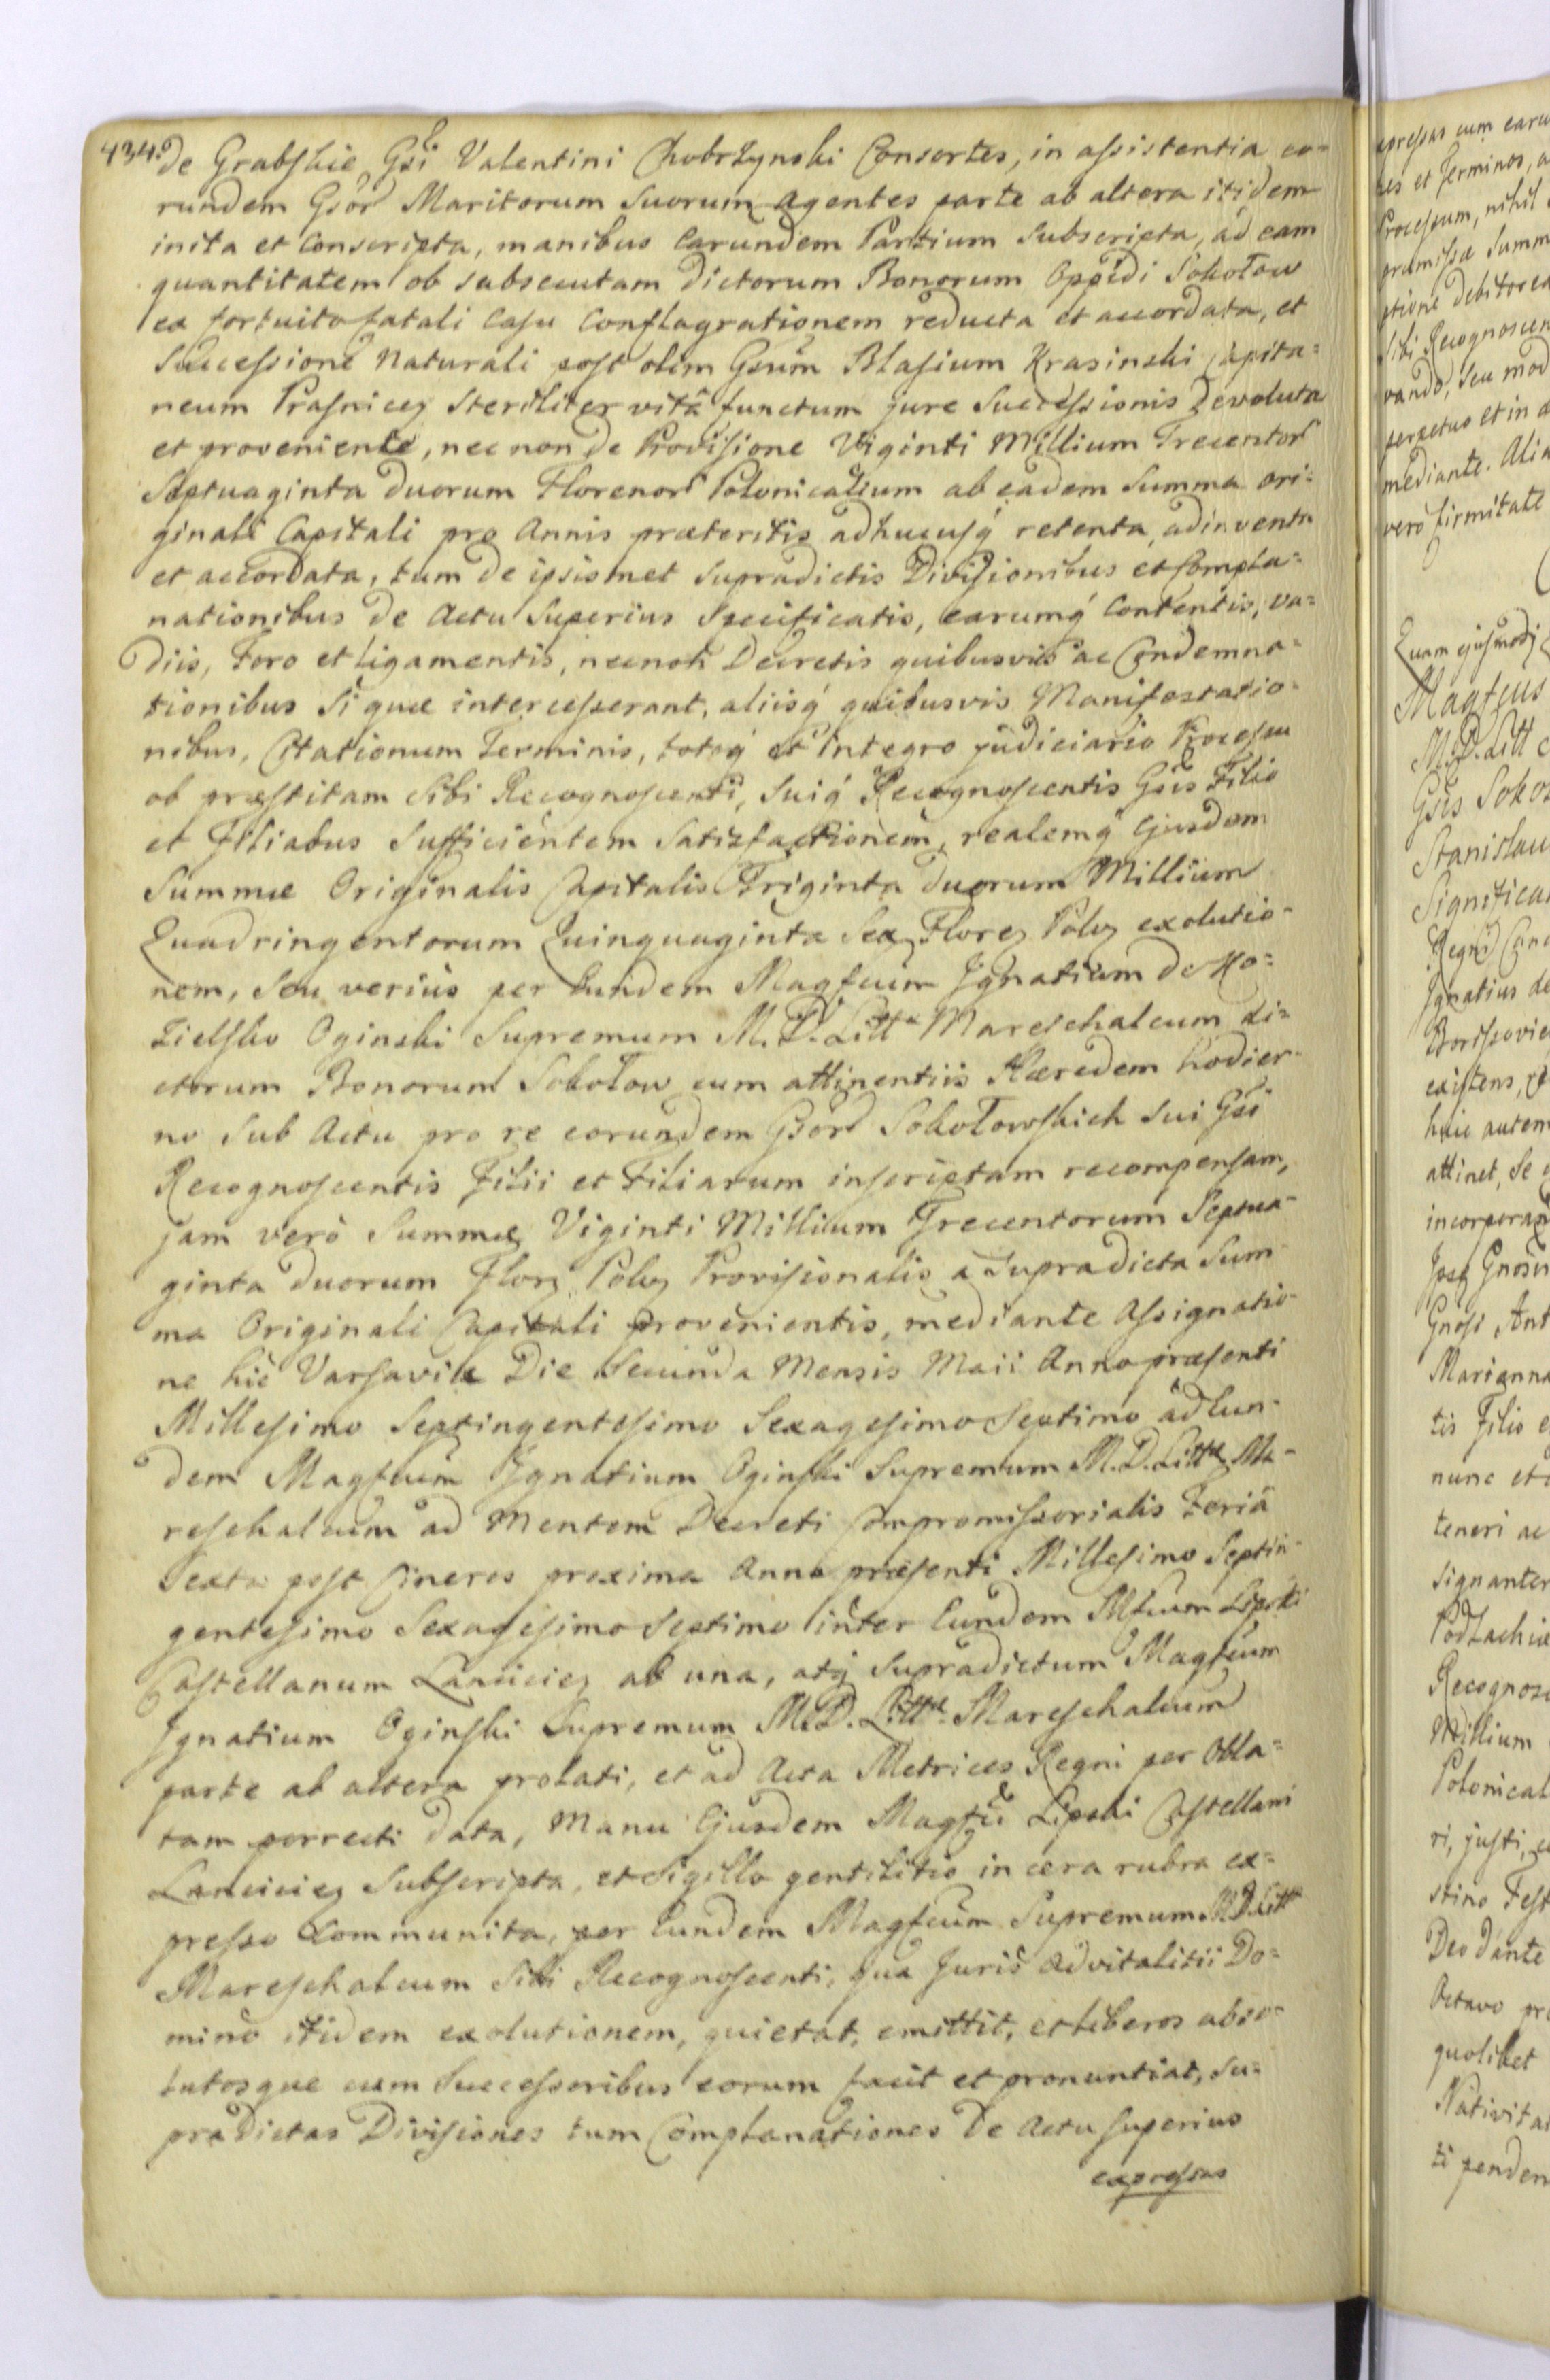 434.
de Grabskie Gsi Valentini Chobrzynski Consortes, in assistentia eo=
rundem Gsor Maritorum suorum agentes parte ab altera itidem
inita et conscripta, manibus earundem Partium subscripta, ad eam
quantitatem ob subsecutam dictorum Bonorum Oppidi Sokołow
ex fortuito fatali casu conflagrationem reducta et accordata, et
successione naturali post olim Gsum Blasium Krasinski Capita=
neum Prasnicen steriliter vitâ functum jure successionis devoluta
et proveniente, nec non de Provisione Viginti Millium Trecentor
Septuaginta duorum Florenor Polonicalium ab eadem Summa ori=
ginali Capitali pro Annis præteritis adhucusq retenta, adinventa
et accordata, tum de ipsismet supradictis Divisionibus et Compla=
nationibus de actu superius specificatis, earumq contentis, va=
diis, foro et ligamentis, necnon Decretis quibusvis ac Condemna=
tionibus si quæ intercesserant, aliisq quibusvis Manifestatio=
nibus, Citationum terminis, totoq et integro judiciario Processu
ob præstitam sibi Recognoscenti, suiq Recognoscentis Gsis Filio
et Filiabus sufficientem satisfactionem, realemq Ejusdem
Summæ Originalis Capitalis Triginta duorum Millium
Quadringentorum Quinquaginta Sex Floren Polon exolutio=
nem, seu verius per Eundem Magfcum Ignatium de Ko=
zielsko Oginski Supremum M. D. Litt Mareschalcum di=
ctorum Bonorum Sokołow cum attinentiis Hæredem hodier=
no sub actu pro re eorundem Gsor Sokołowskich sui Gsi
Recognoscentis Filii et Filiarum inscriptam recompensam,
jam verò Summæ Viginti Millium Trecentorum Septua=
ginta duorum Flor Polon Provisionalis a supradicta Sum=
ma Originali Capitali provenientis, mediante Assignatio=
ne hic Varsaviæ Die Secunda Mensis Maii Anno præsenti
Millesimo Septingentesimo Sexagesimo Septimo ad Eun=
dem Magfcum Ignatium Oginski Supremum M. D. Litt Ma=
reschalcum ad mentem Decreti Compromissorialis Feriâ
sexta post Cineres proxima Anno præsenti Millesimo Septin=
gentesimo Sexagesimo Septimo inter Eundem Mfcum Lipski
Castellanum Lancicien ab una, atq supradictum Magfcum
Ignatium Oginski Supremum M. D. Litt Mareschalcum
parte ab altera prolati, et ad Acta Metrices Regni per Obla=
tam porrecti data, manu Ejusdem Magfci Lipski Castellani
Lancicien subscripta, et sigillo gentilitio in cera rubra ex=
presso communita, per Eundem Magfcum Supremum M. D. Litt
Mareschalcum sibi Recognoscenti, qua Juris advitalitii Do=
mino itidem exolutionem, quietat, emittit, et liberos abso=
lutosque cum Successoribus eorum facit et pronuntiat, su=
pradictas Divisiones tum Complanationes de actu superius
expressas
expressas cum earu
et terminos, a
Processum, nihil
præmissæ Summ
ptione debitorea
sibi Recognoscen
vando, seu mod
perpetuo et in a
mediante. Alia
vero firmitate
Quam ejusmodi
Magfcus
M. D. Litt
Gsis Soko
Stanislau
Significa
Regni Canc
Ignatius de
Borissovie
existens,
huic autem
attinet, se
incorporan
Gnosi Ant
Marianna
tis Filio e
nunc et
teneri ac
signanter
Podlachiæ
Recognosc
Millium
Polonical
ri, justi,
stino Fest
Deo dante
Octavo pr
quolibet
Nativitat
ti penden